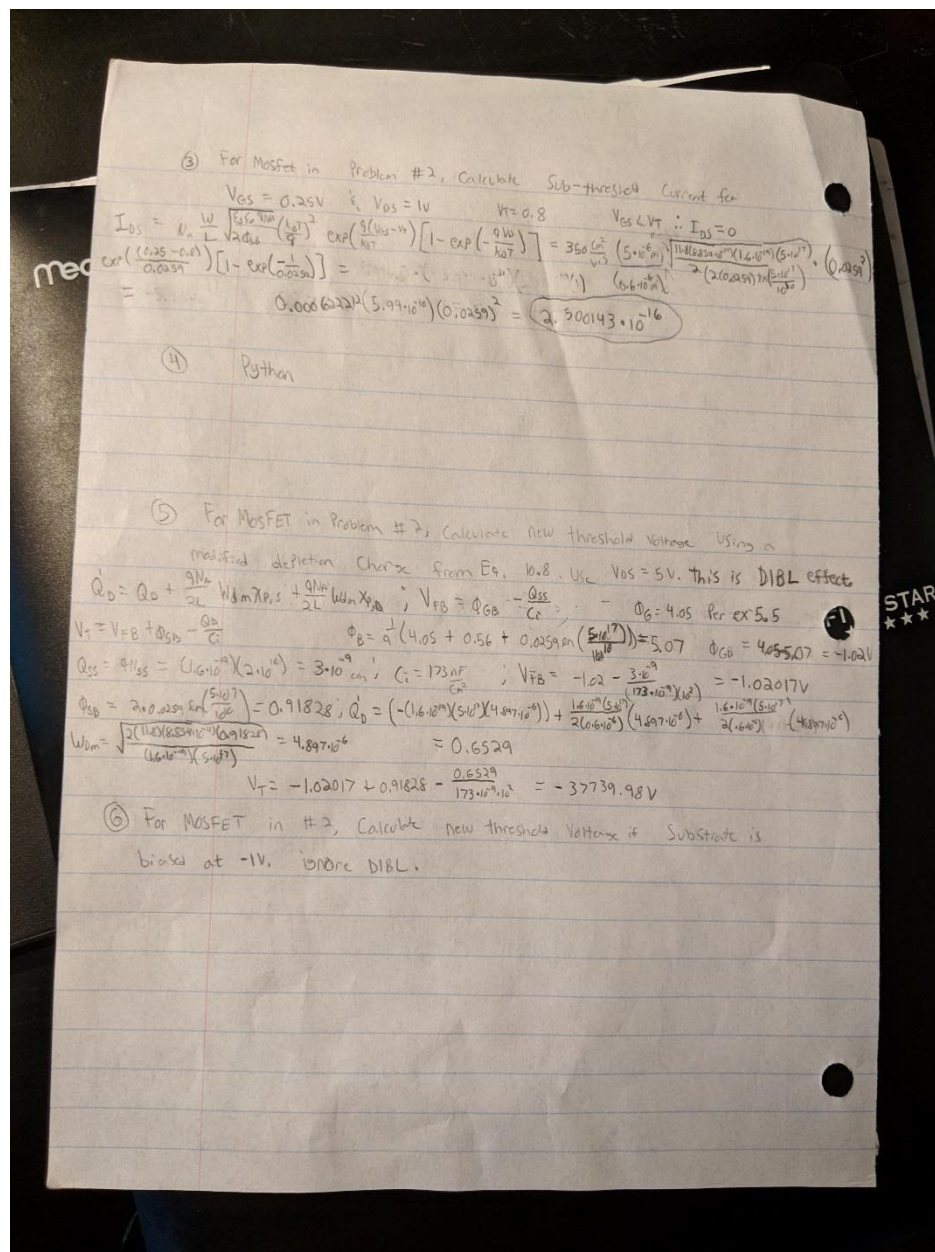 ③ For Mosfet in Problem #2, Calculate Sub-threshold Current for
V_GS = 0.25V & V_DS = 1V V_T = 0.8 V_GS < V_T ∴ I_DS = 0
I_DS = μ_n W/L √(ε_s ε_o qN_A / 2Φ_sB) (k_0T/q)² exp(q(V_GS-V_T)/k_0T) [1 - exp(-qV_D/k_0T)] = 350 cm²/V·s (5·10⁻⁶m)/(0.6·10⁻⁶m) √(11.8(8.854·10⁻¹⁴)(1.6·10⁻¹⁹)(5·10¹⁷) / 2(2(0.0259)ln(5·10¹⁷/10¹⁰))) · (0.0259²)
exp((0.25-0.8)/0.0259) [1 - exp(-1/0.0259)] =
= 0.0006222¹² (5.99·10⁻¹⁰)(0.0259)² = 2.500143·10⁻¹⁶
④ Python
⑤ For MOSFET in Problem #2, Calculate new threshold voltage using a
modified depletion Charge from Eq. 10.8. Use V_DS = 5V. This is DIBL effect
Q'_D = Q_D + qN_A/2L W_dm X_P,S + qN_A/2L W_dm X_P,D ; V_FB = Φ_GB - Q_SS/C_i ; Φ_G = 4.05 Per ex 5.5
V_T = V_FB + Φ_SB - Q_D/C_i Φ_B = 1/q (4.05 + 0.56 + 0.0259 ln(5·10¹⁷/10¹⁰)) = 5.07 Φ_GB = 4.05-5.07 = -1.02V
Q_SS = qN_SS = (1.6·10⁻¹⁹)(2·10¹⁰) = 3·10⁻⁹ ; C_i = 173 nF/cm² ; V_FB = -1.02 - 3·10⁻⁹/(173·10⁻⁹)(10²) = -1.02017V
Φ_SB = 2·0.0259 ln(5·10¹⁷/10¹⁰) = 0.91828 ; Q'_D = (-(1.6·10⁻¹⁹)(5·10¹⁷)(4.897·10⁻⁶)) + 1.6·10⁻¹⁹(5·10¹⁷)/2(0.6·10⁻⁶) (4.897·10⁻⁶) + 1.6·10⁻¹⁹(5·10¹⁷)/2(.6·10⁻⁶) (4.897·10⁻⁶)
W_Dm = √(2(11.8)(8.854·10⁻¹⁴)(0.91828) / (1.6·10⁻¹⁹)(5·10¹⁷)) = 4.897·10⁻⁶ = 0.6529
V_T = -1.02017 + 0.91828 - 0.6529/173·10⁻⁹·10² = -37739.98V
⑥ For MOSFET in #2, Calculate new threshold Voltage if Substrate is
biased at -1V. ignore DIBL.
STAR
★★★